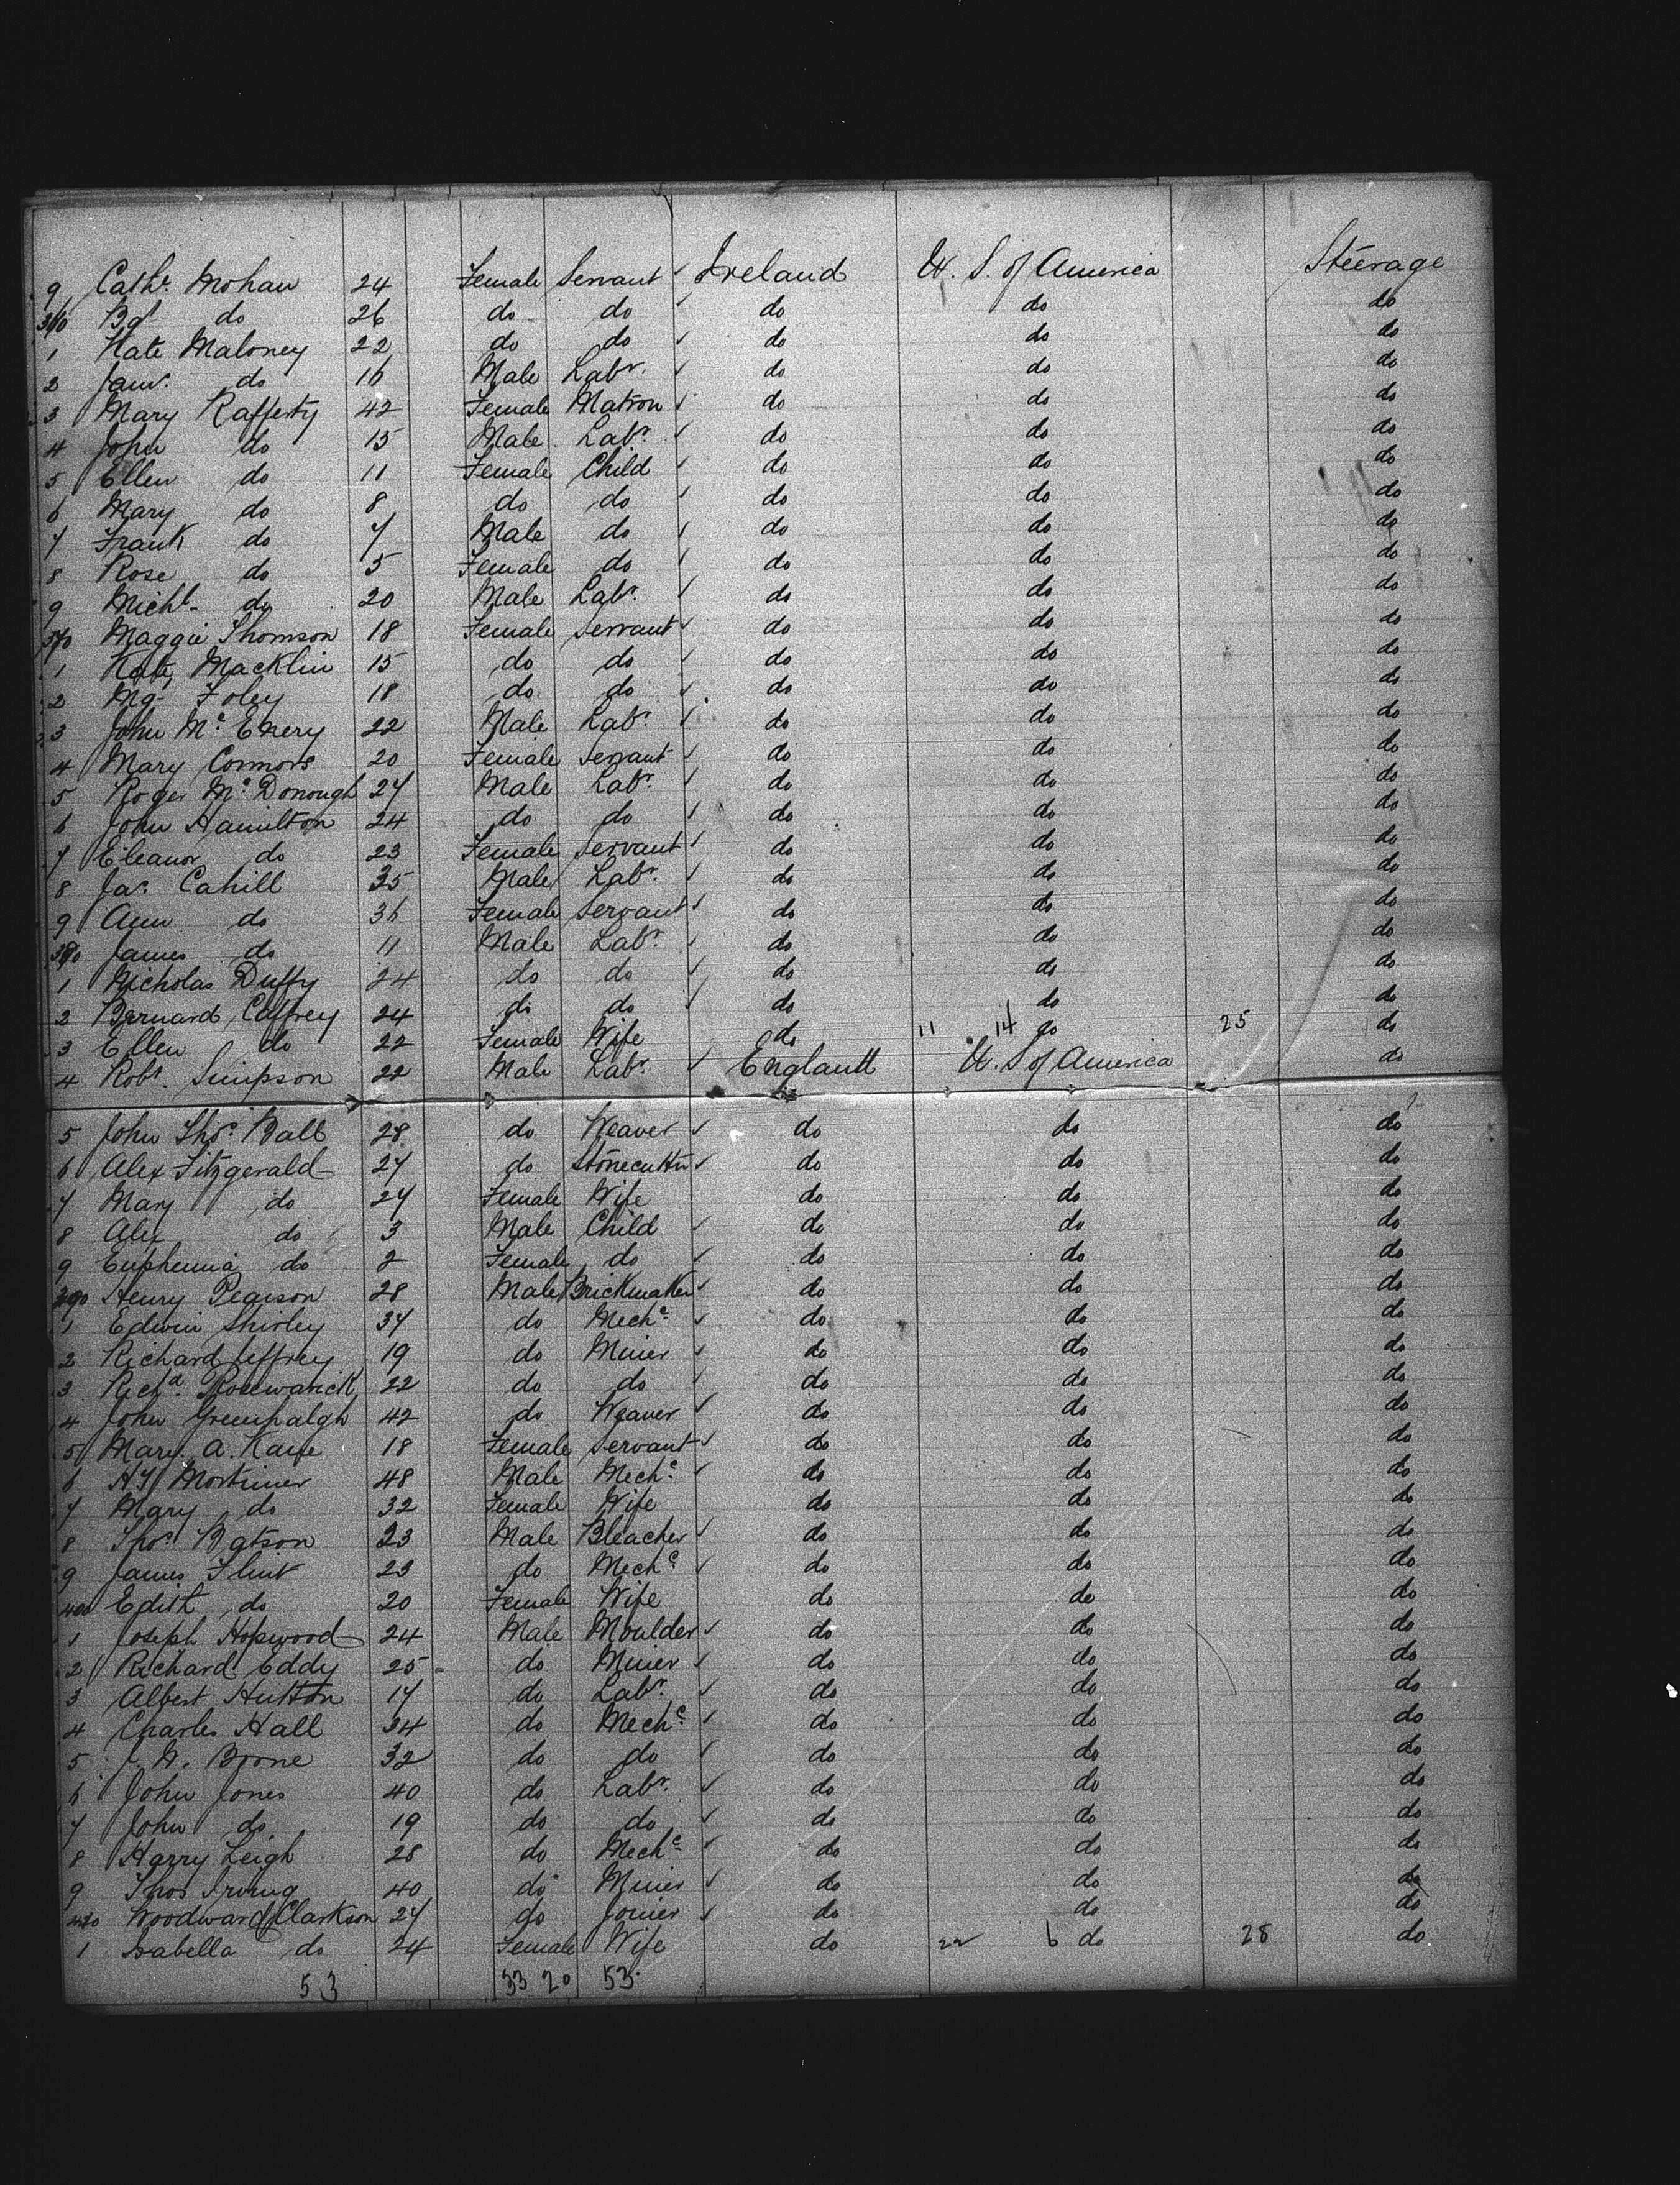 9 Cathe. Mohan 24 Female Servant Ireland U. S. of America Steerage
360 Bdt do 26 do do do do do
1 Kate Maloney 22 do do do do do
2 Jams. do 16 Male Labr. do do do
3 Mary Rafferty 42 Female Matron do do do
4 John do 15 Male Labr. do do do
5 Ellen do 11 Female Child do do do
6 Mary do 8 do do do do do
7 Frank do 7 Male do do do do
8 Rose do 5 Female do do do do
9 Michl. do 20 Male Labr. do do do
370 Maggie Thomson 18 Female Servant do do do
1 Kate Macklin 15 do do do do do
2 Mgt Foley 18 do do do do do
3 John Mc. Enery 22 Male Labr. do do do
4 Mary Connors 20 Female Servant do do do
5 Roger Mc. Donough 27 Male Labr. do do do
6 John Hamilton 24 do do do do do
7 Eleanor do 23 Female Servant do do do
8 Jas. Cahill 35 Male Labr. do do do
9 Ann do 36 Female Servant do do do
380 James do 11 Male Labr. do do do
1 Nicholas Duffy 24 do do do do do
2 Bernard Caffrey 24 do do do do do
3 Ellen do 22 Female Wife do 11 14 do 25 do
4 Robt. Simpson 22 Male Labr. England U. S of America do
5 John Thos. Ball 28 do Weaver do do do
6 Alex Fitzgerald 27 do Stonecutter do do do
7 Mary do 27 Female Wife do do do
8 Alex do 3 Male Child do do do
9 Euphemia do 2 Female do do do do
390 Henry Pearson 28 Male Brickmaker do do do
1 Edwin Shirley 37 do Mechc. do do do
2 Richard Jeffrey 19 do Miner do do do
3 Richd. 22 do do do do do
4 John Greenhalgh 42 do Weaver do do do
5 Mary A. Kane 18 Female Servant do do do
6 Mortimer 48 Male Mechc. do do do
7 Mary do 32 Female Wife do do do
8 Thos. Batson 23 Male Bleacher do do do
9 James Flint 23 do Mechc. do do do
400 Edith do 20 Female Wife do do do
1 Joseph Hopwood 24 Male Moulder do do do
2 Richard Eddy 25 do Miner do do do
3 Albert Hutton 17 do Labr. do do do
4 Charles Hall 34 do Mechc. do do do
5 W. Boone 32 do do do do do
6 John Jones 40 do Labr. do do do
7 John do 19 do do do do do
8 Harry Leigh 28 do Mechc. do do do
9 Thos Irving 40 do Miner do do do
410 Woodward Clarkson 27 do Joiner do do do
1 Isabella do 24 Female Wife do 22 6 do 28 do
53 33 20 53